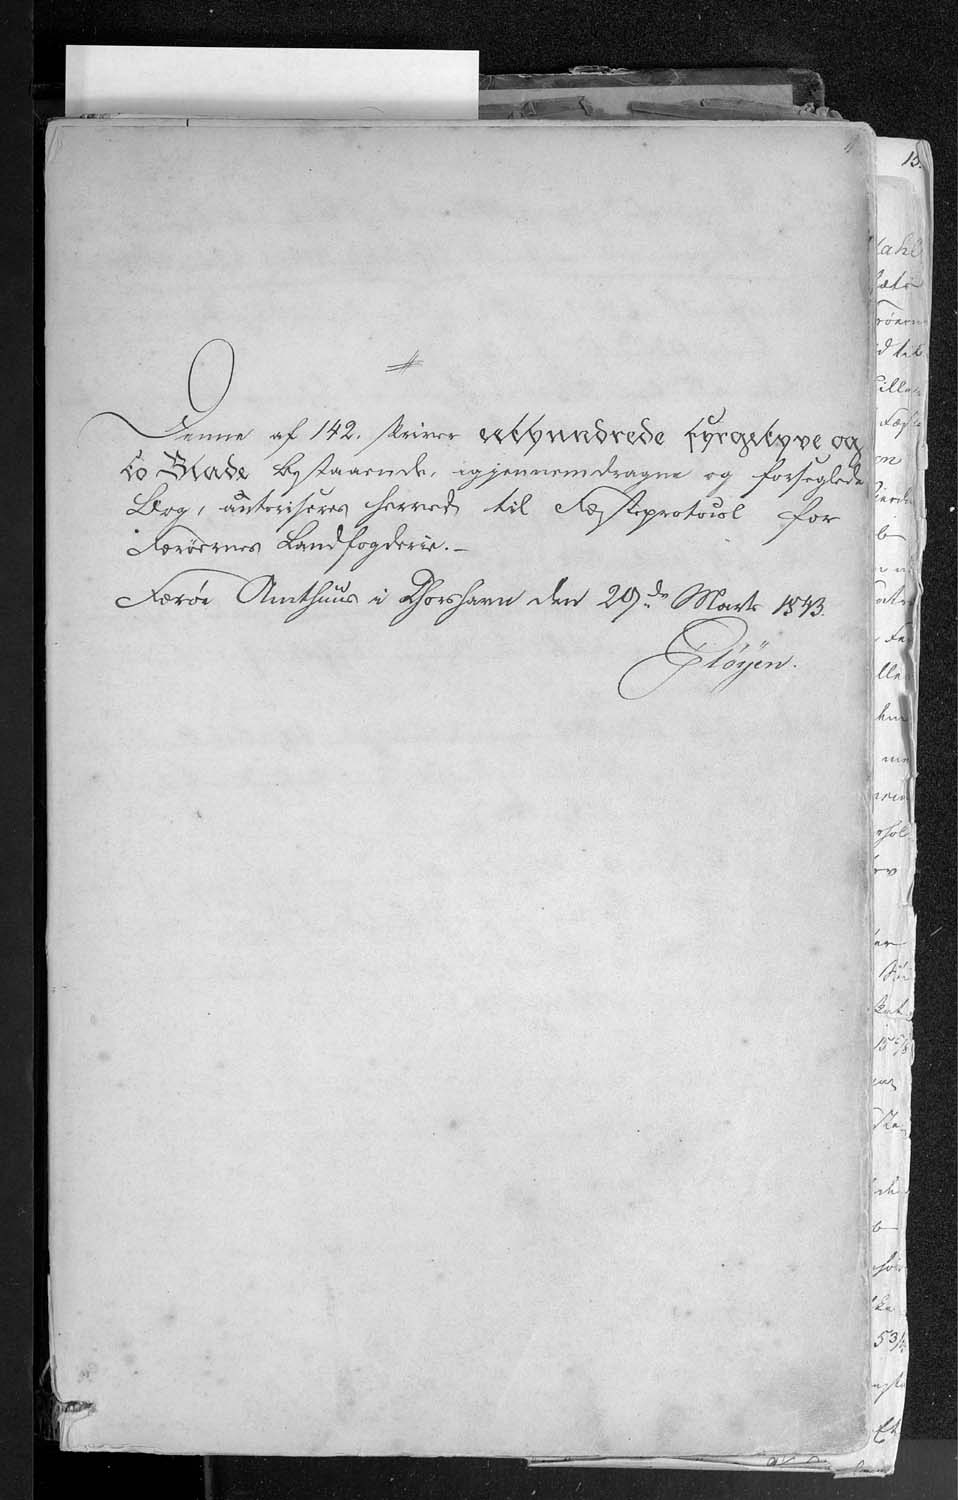 Denne af 142. skriver eethundrede fyrgetyve og
to Blade bestaaende, igjennemdragne og forseglede
Bog, autoriseres herved til Fæsteprotocol for
Færöernes Landfogderie.-
Færöe Amthuus i Thorshavn den 29de Marts 1843.
Pløyen.